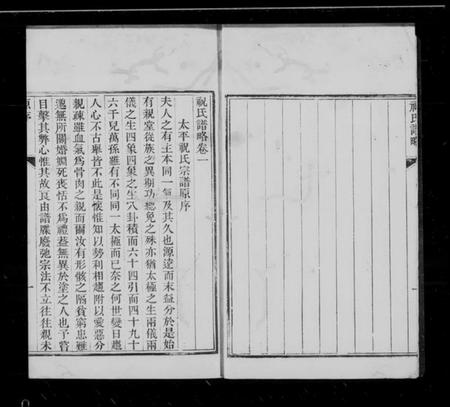 祝氏譜略
祝氏譜略卷一
太平祝氏宗譜原序
夫人之有生本同一氣及其久也源遠而末益分於是始
有親堂從族之異期功緦免之殊亦猶太極之生兩儀兩
儀之生四象四象之生八卦積而六十四引而四千九十
六千兒萬孫雖有不同同一太極而已奈之何世變日趨
人心不古舉皆不此是懷惟知以勢利相趨附以愛惡分
親疎雖血氣爲骨肉之親而爾汝有形骸之隔貧窮患難
邈無所關婚姻死喪恬不爲禮葢無異於塗之人也予嘗
目擊其弊心惟其故良由譜牒廢弛宗法不立往往親未
原序
一